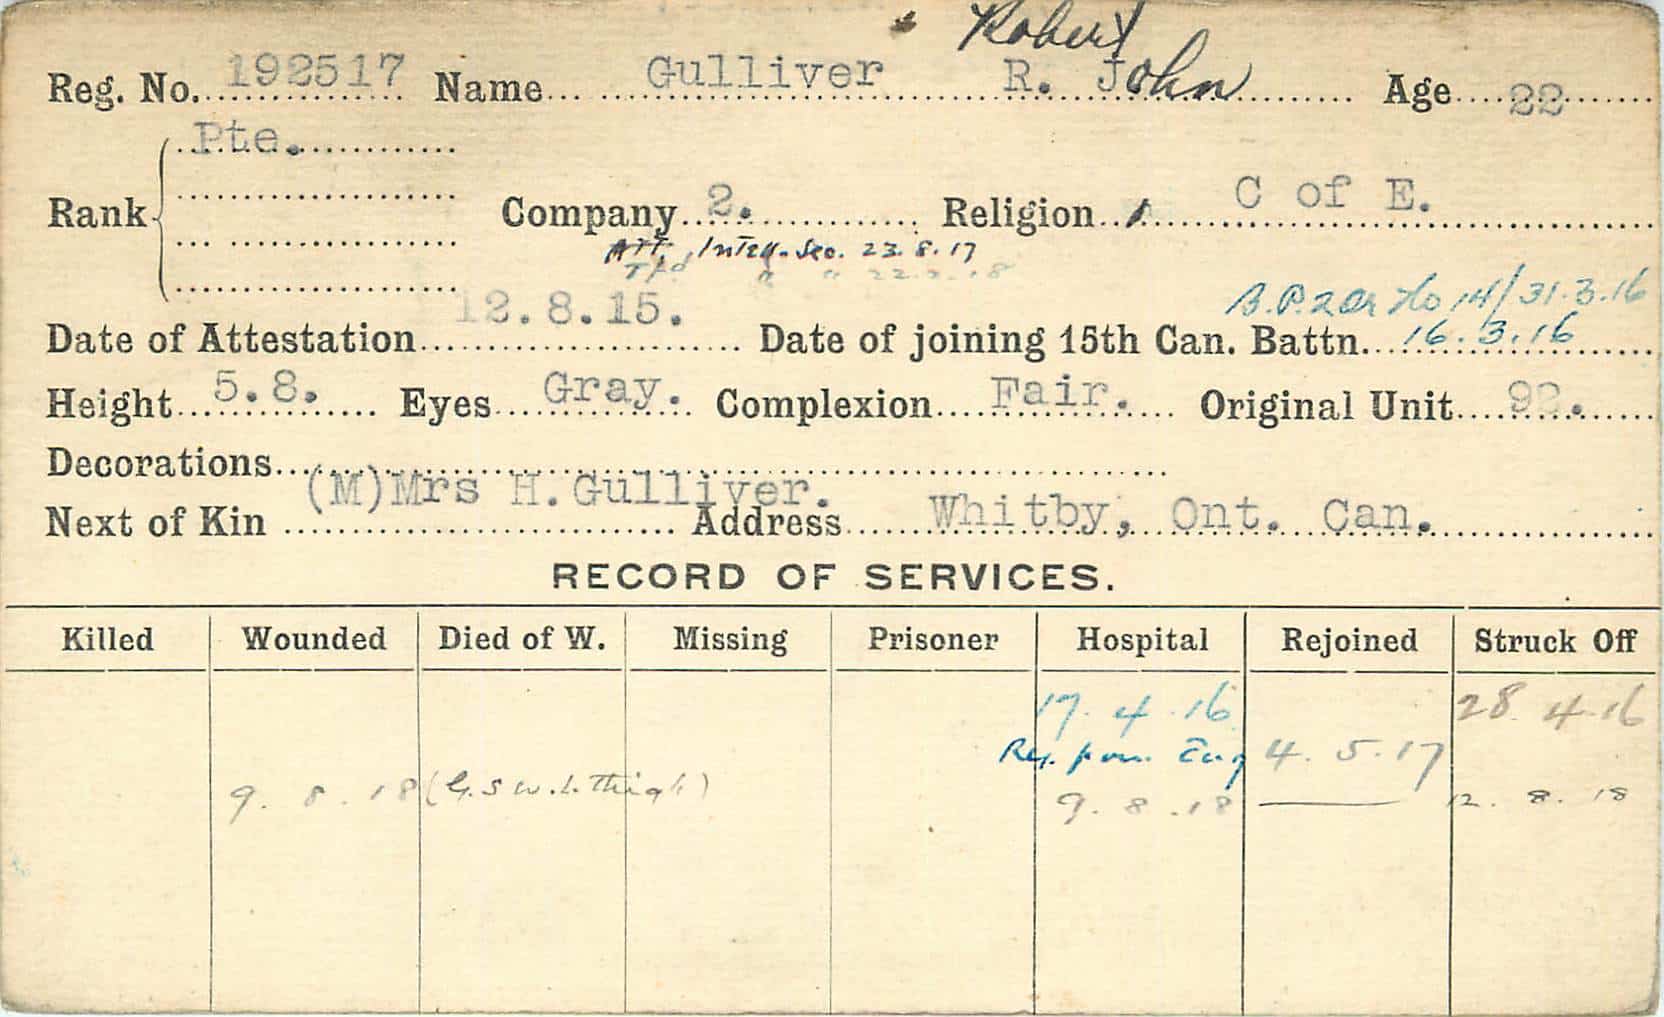 Robert
Reg. No. 192517 Name Gulliver R. John Age 22
Pte.
Rank Company 2. Religion C of E.
Att. Intell. Sec. 23.8.17
Tfd " " 22. .18
12.8.15. B.P.2 Or No 14/31.3.16
Date of Attestation Date of joining 15th Can. Battn. 16.3.16
Height 5.8. Eyes Gray. Complexion Fair. Original Unit 92.
Decorations
(M)Mrs H.Gulliver.
Next of Kin Address Whitby, Ont. Can.
RECORD OF SERVICES.
Killed Wounded Died of W. Missing Prisoner Hospital Rejoined Struck Off
17.4.16 28.4.16
from Eng 4.5.17
9.8.18 (G.S.W.L.Thigh) 9.8.18 — 12.8.18